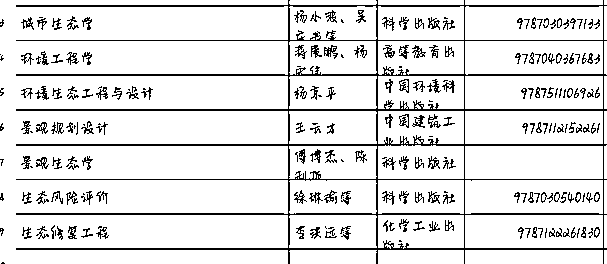 3 城市生态学 杨小波、吴 科学出版社 9787030397133
4 环境工程学 蒋展鹏、杨 高等教育出版社 9787040367683
5 环境生态工程与设计 杨京平 中国环境科学出版社 9787511106926
6 景观规划设计 王云才 中国建筑工业出版社 9787112152261
7 景观生态学 傅伯杰、陈利顶 科学出版社
8 生态风险评价 徐琳瑜等 科学出版社 9787030540140
9 生态修复工程 李洪远等 化学工业出版社 9787122261830